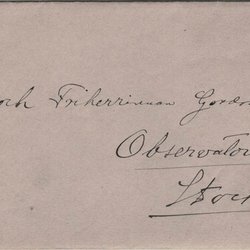 och Friherrinnan
Observator
Stock